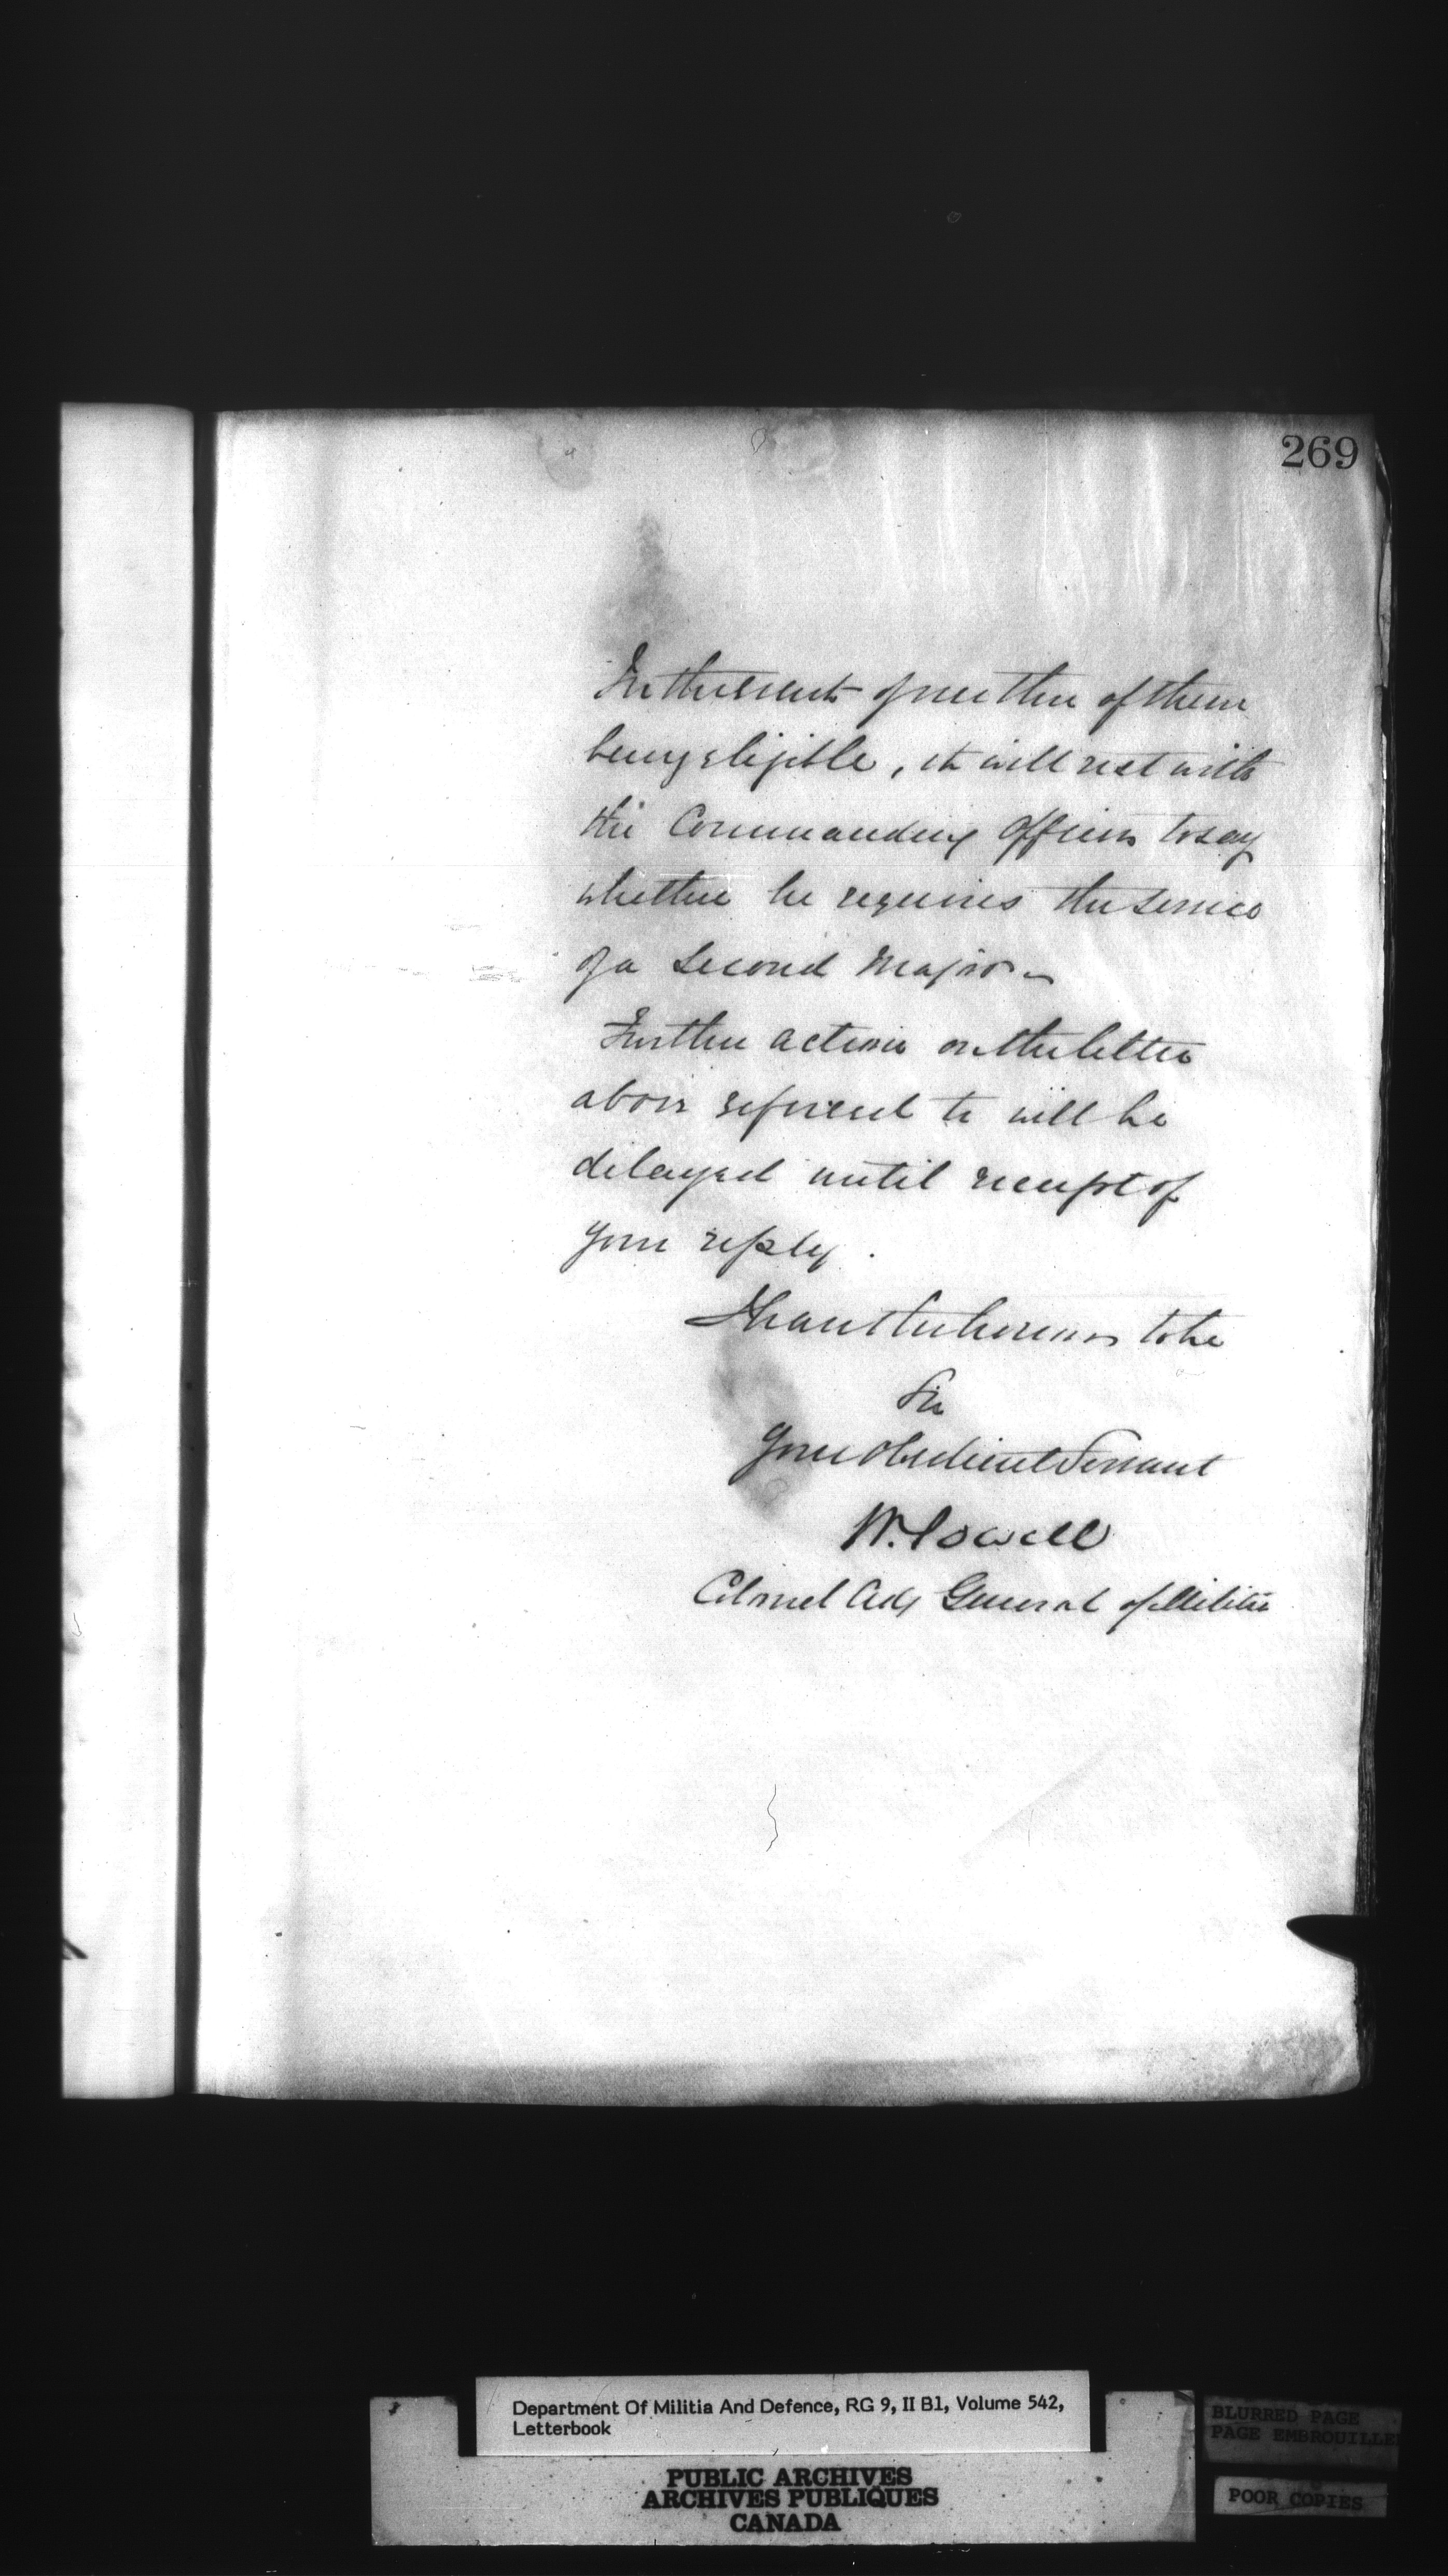 269
In the event of neither of them
being eligible, it will rest with
the Commanding Officer to say
whether he requires the service
of a Second Major.
Further action on the letter
above referred to will be
delayed until receipt of
your reply.
I have the honor to be
Sir
Your obedient Servant
W. Powell
Colonel Adj General of Militia
Department Of Militia And Defence, RG 9, II B1, Volume 542,
Letterbook
PUBLIC ARCHIVES
ARCHIVES PUBLIQUES
CANADA
BLURRED PAGE
PAGE EMBROUILLE
POOR COPIES